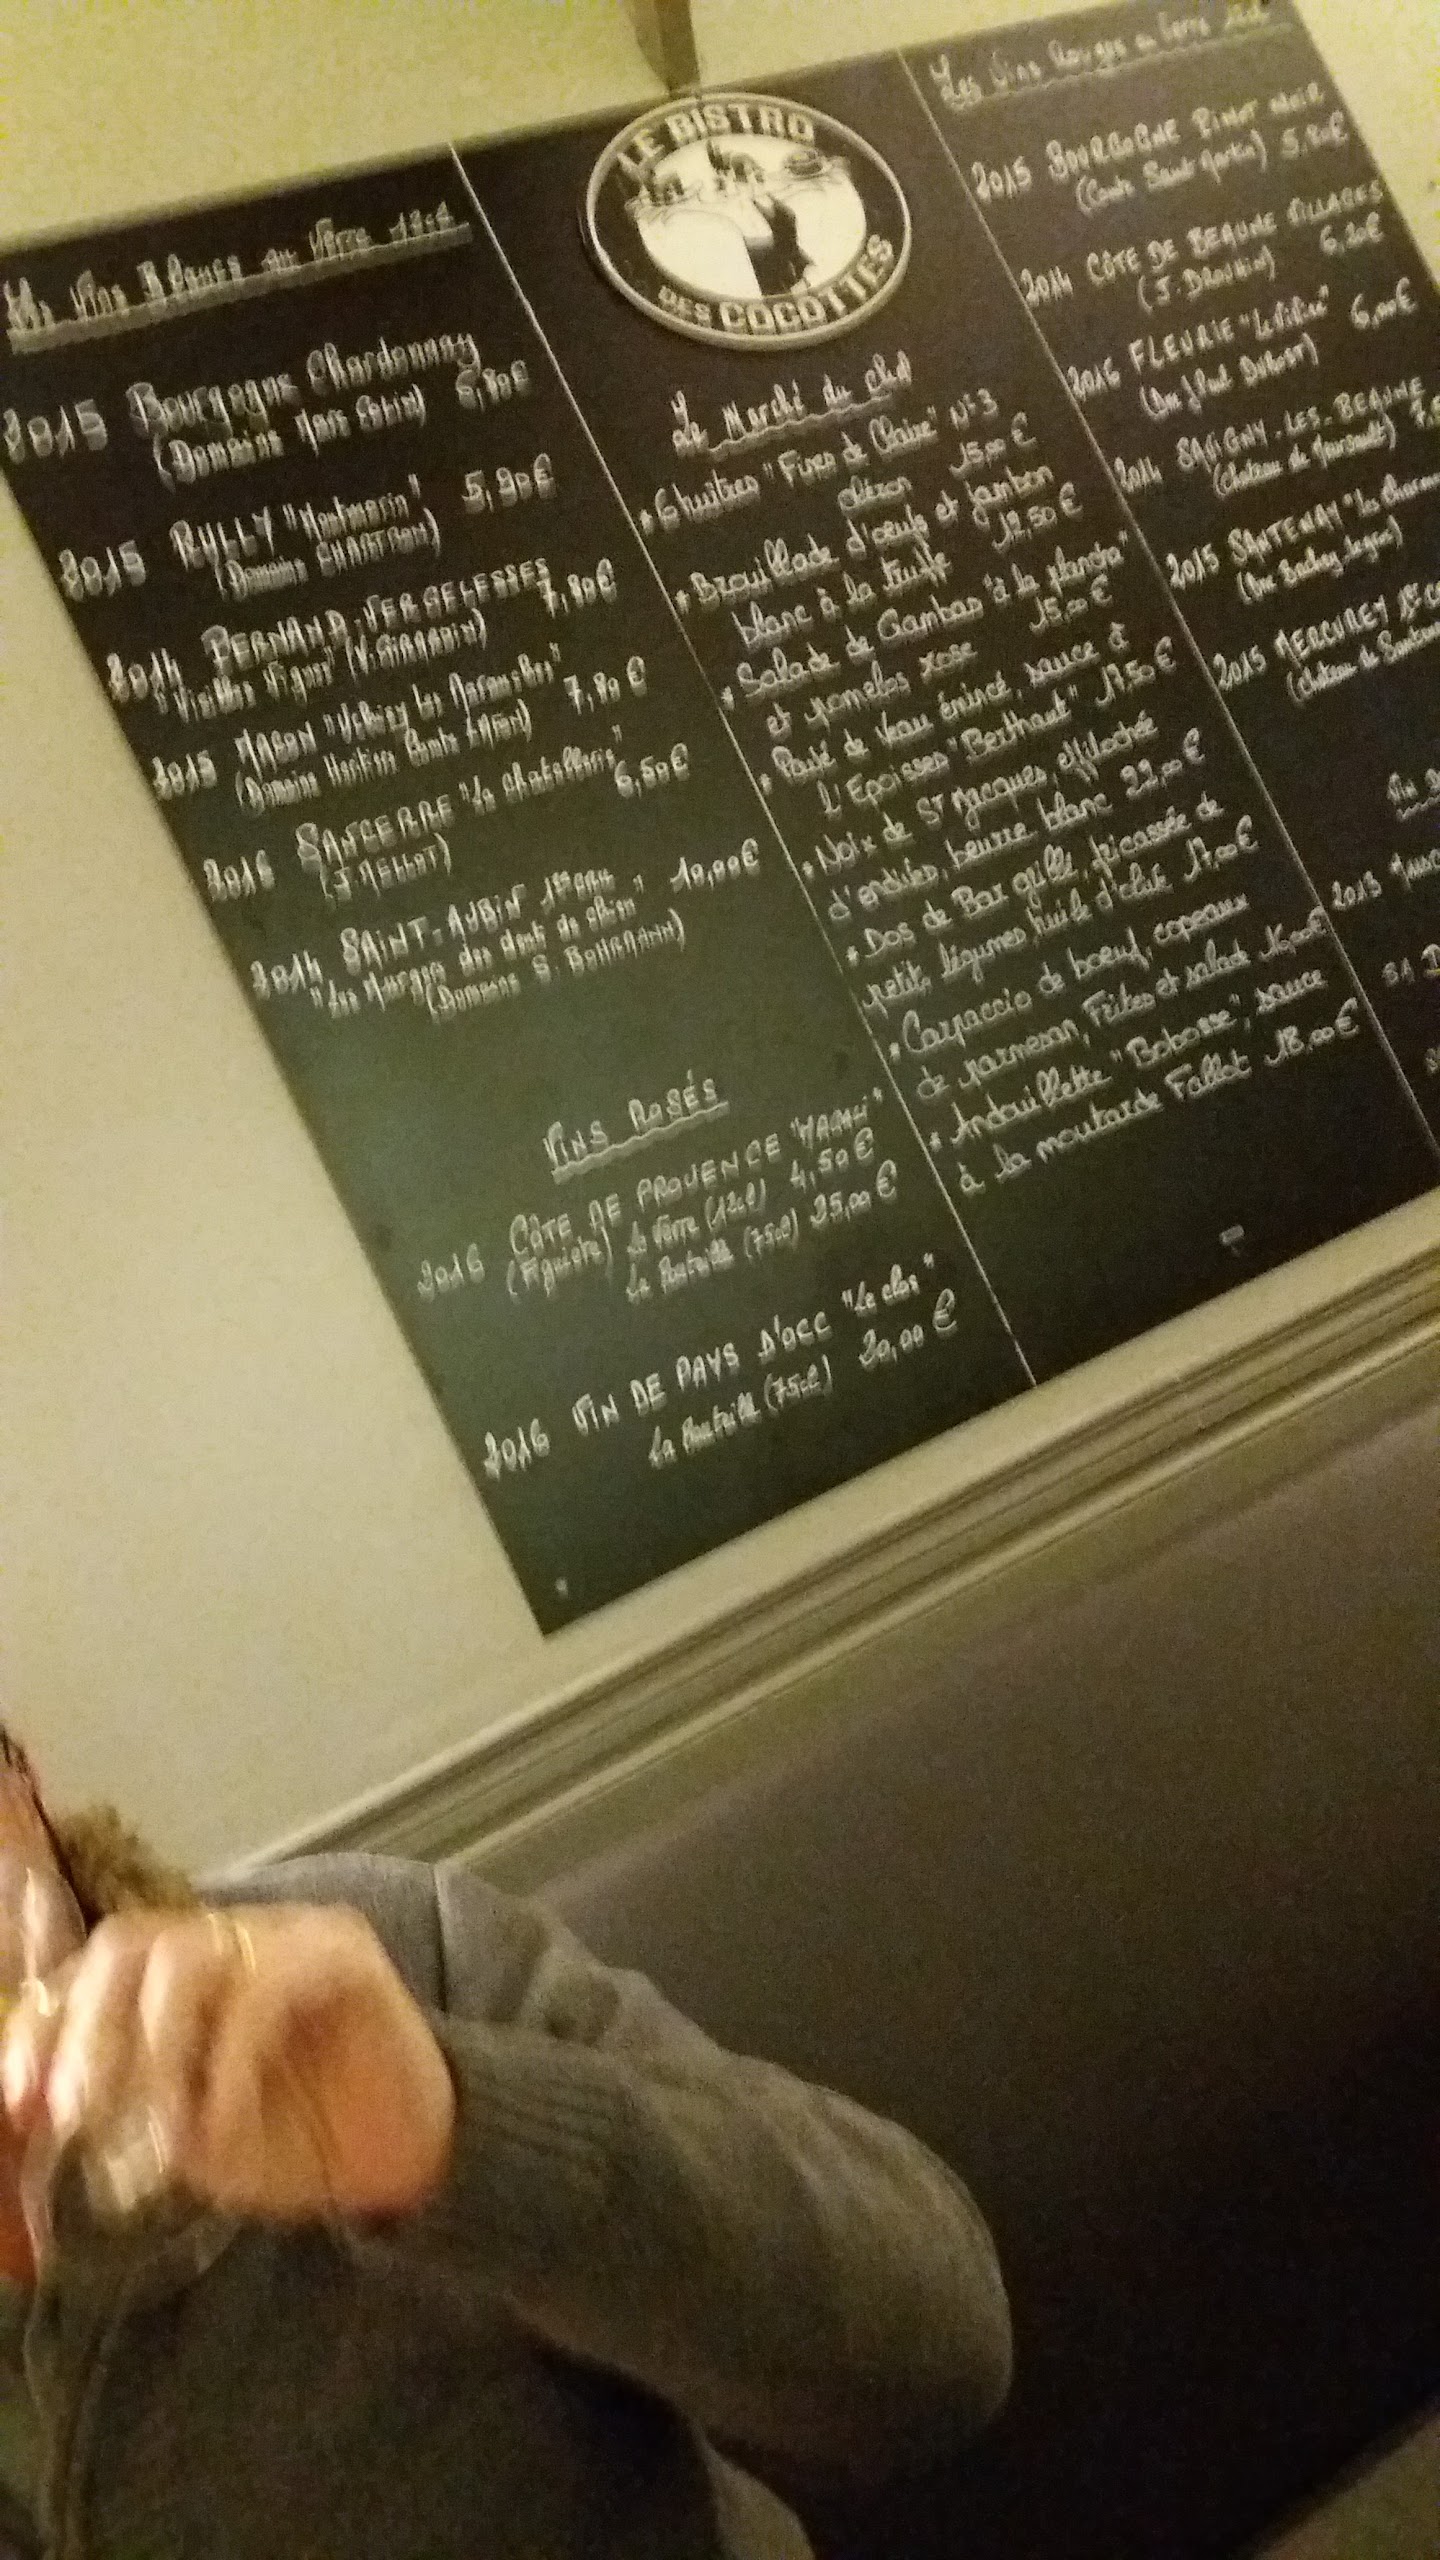 Les Vins Blancs au Verre 12cl
2015 Bourgogne Chardonnay
(Domaine Marc Colin) 6,80€
2015 RULLY "Montmorin" 5,90€
(Domaine CHARTRON)
2014 PERNAND-VERGELESSES
"Vieilles Vignes" (V. GIRARDIN) 7,80€
2015 MACON
(Domaine Héritiers Comte Lafon) 7,80€
2016 SANCERRE "La Chatellerie"
(J. MELLOT) 6,50€
2014 SAINT-AUBIN 1er cru
"Les Murgers des dent de chien" 10,00€
(Domaine S. BOHRMANN)
VINS ROSÉS
2016 CÔTE DE PROVENCE "MAGALI"
(Figuière) Le Verre (12cl) 4,50€
La Bouteille (75cl) 25,00€
2016 VIN DE PAYS D'OCC "Le clos"
La Bouteille (75cl) 20,00€
LE BISTRO
DES COCOTTES
Le Marché du chef
* 6 huîtres "Fines de Claire" N°3
citron 15,00€
* Brouillade d'oeufs et jambon
blanc à la truffe 12,50€
* Salade de Gambas "à la plancha"
et pomelos rose 15,00€
* Pavé de Veau émincé, sauce à
l'Epoisses "Berthaut" 17,50€
* Noix de St Jacques, effilochée
d'endives, beurre blanc 22,00€
* Dos de Bar grillé, fricassée de
petits légumes, huile d'olive 17,00€
* Carpaccio de boeuf, copeaux
de parmesan, Frites et salade 16,00€
* Andouillette "Bobosse", sauce
à la moutarde Fallot 18,00€
Les Vins Rouges au Verre 12cl
2015 BOURGOGNE PINOT NOIR
(Comte Saint Martin) 5,80€
2014 CÔTE DE BEAUNE VILLAGES
(J. DROUHIN) 6,20€
2016 FLEURIE 6,00€
2014 SAVIGNY-LES-BEAUNE
(château de Meursault)
2015 SANTENAY
2015 MERCUREY
2013